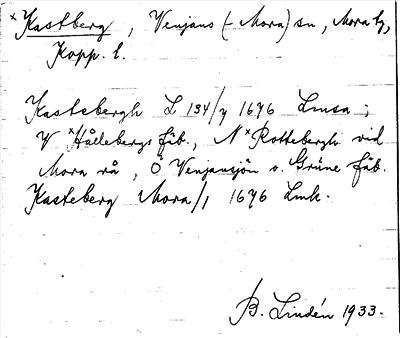 ×Kastberg, Venjans (– Mora) sn, Mora tg,
Kopp. l.
Kastebergh L 134/y 1676 Lmsa;
V ×Hållebergs fäb., N ×Rottebergh vid
Mora rå, Ö Venjansjön o. Grune fäb.
Kasteberg Mora/1 1676 Lmk.
B. Lindén 1933.